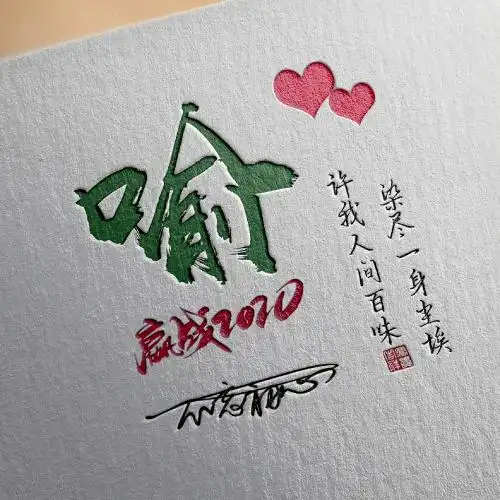 喻
赢战2020
染尽一身尘埃
许我人间百味